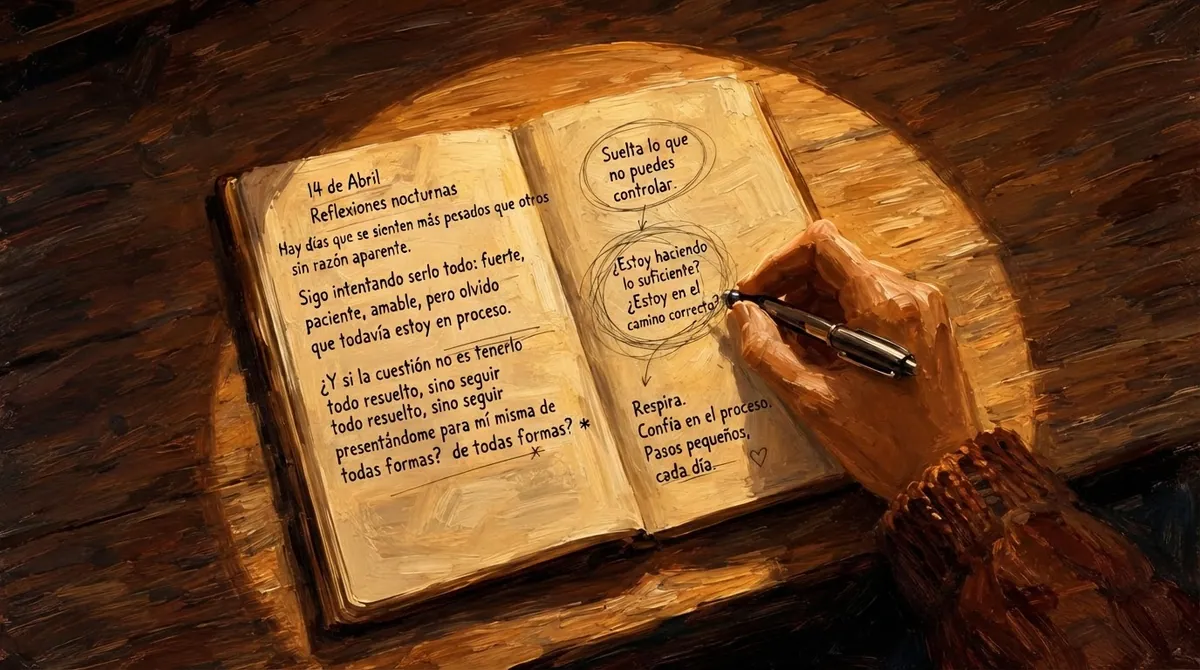 14 de Abril
Reflexiones nocturnas
Hay días que se sienten más pesados que otros
sin razón aparente.
Sigo intentando serlo todo: fuerte,
paciente, amable, pero olvido
que todavía estoy en proceso.
¿Y si la cuestión no es tenerlo
todo resuelto, sino seguir
todo resuelto, sino seguir
presentándome para mí misma de
todas formas? de todas formas? *
Suelta lo que
no puedes
controlar.
¿Estoy haciendo
lo suficiente?
¿Estoy en el
camino correcto?
Respira.
Confía en el proceso.
Pasos pequeños,
cada día.